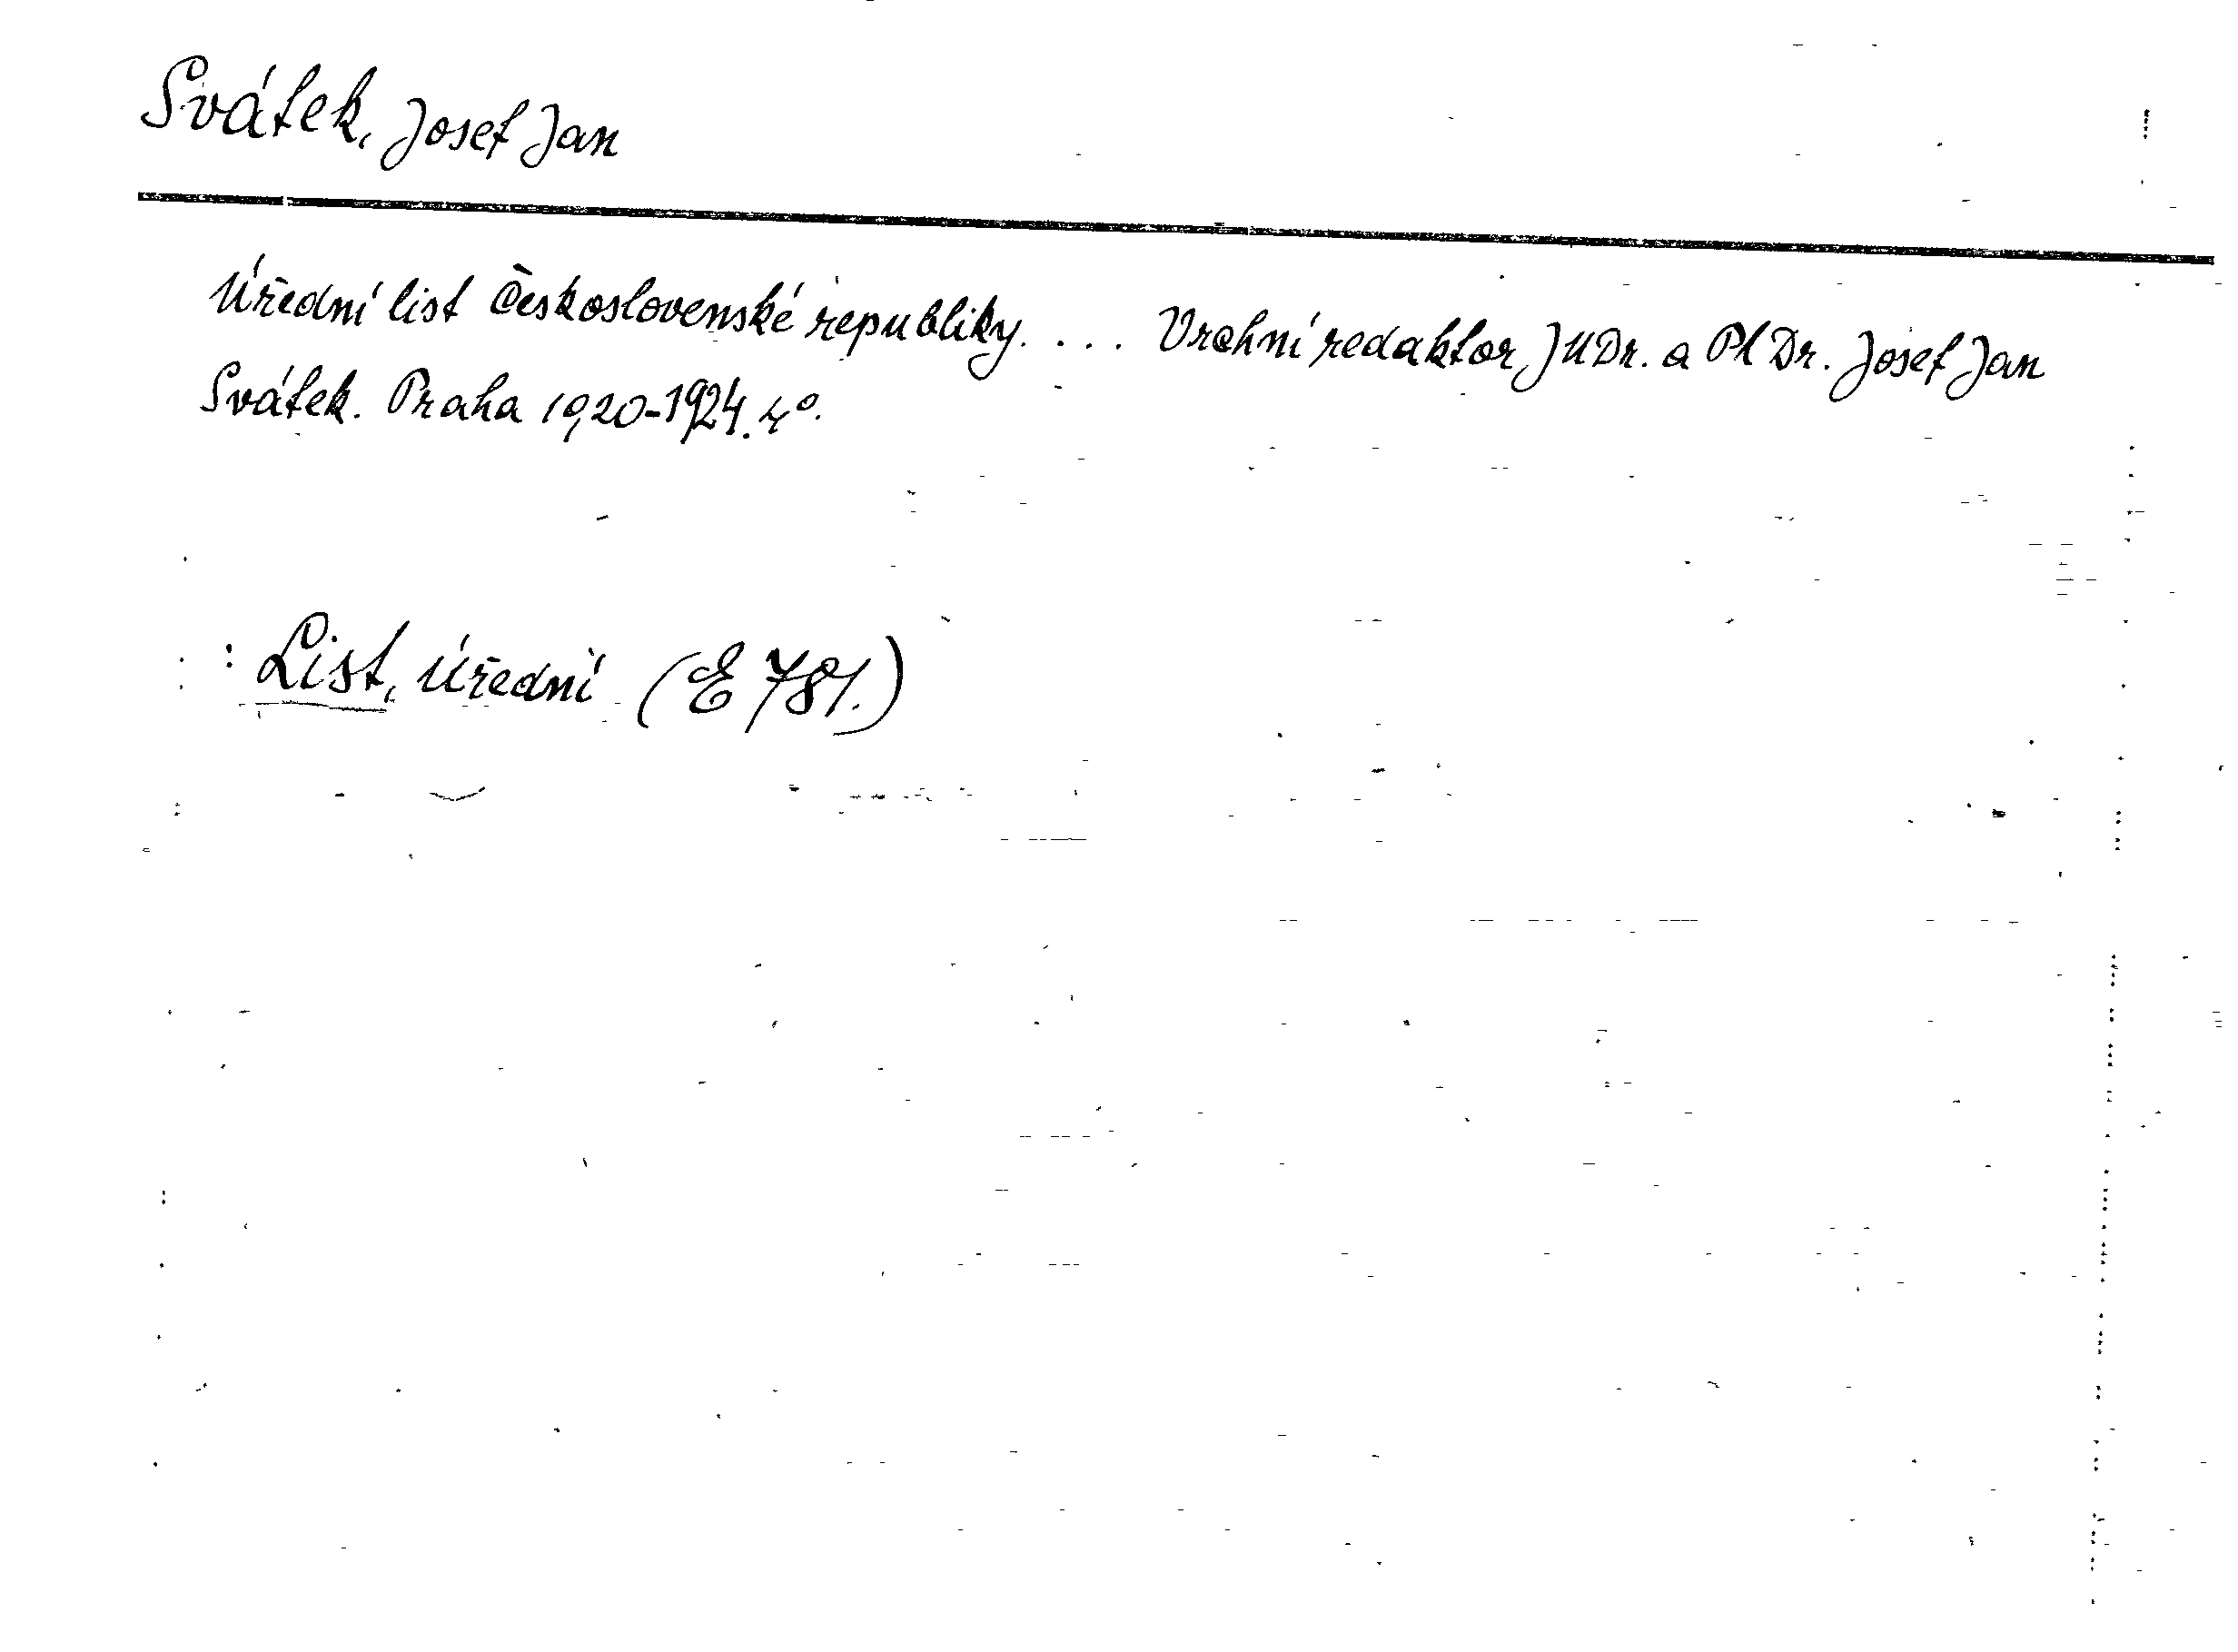 Svátek, Josef Jan
Úřední list Československé republiky. ... Vrchní redaktor JUDr. a Ph Dr. Josef Jan
Svátek. Praha 1920-1924. 4°.
: List, úřední (E 781.)